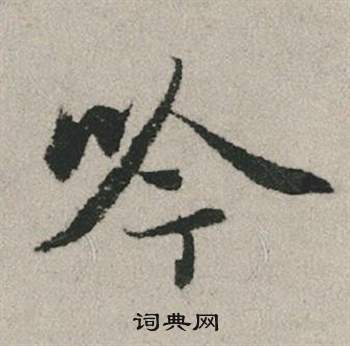 吟
词典网